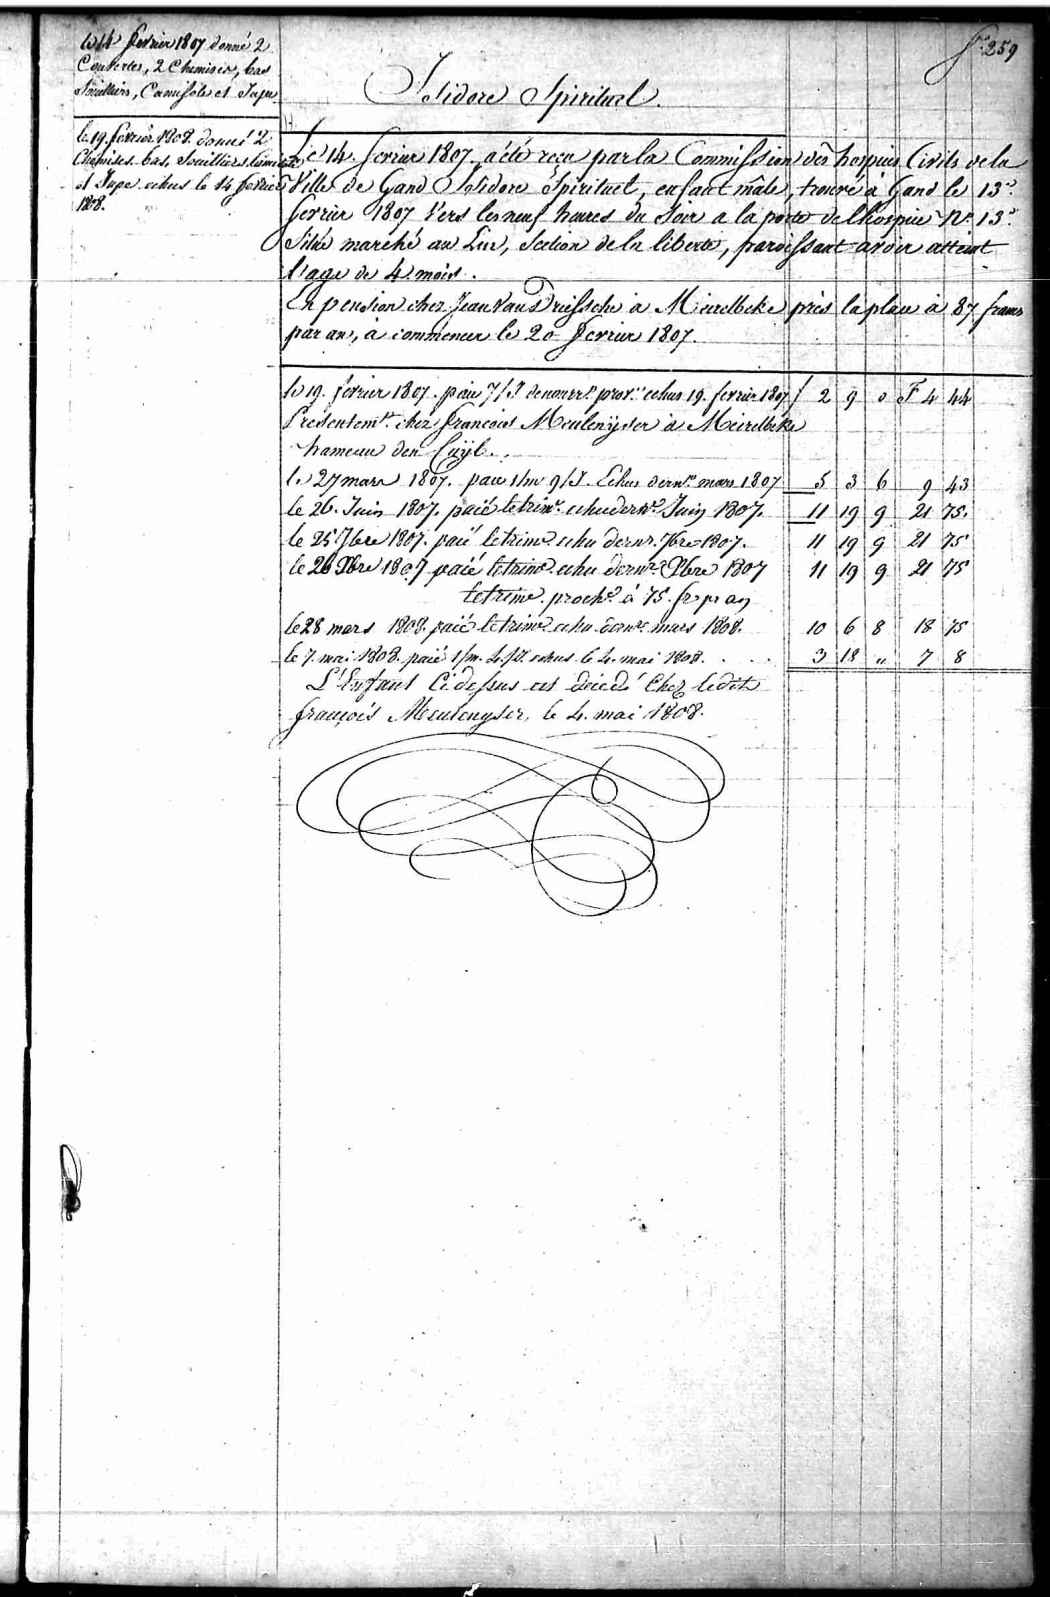 fo. 259
le 14 fevrier 1807 donné 2
Couvertes, 2 Chemises, bas
Soulliers, Camisole et Jupe
le 19. fevrier 1808. donné 2
Chemises. bas. Soulliers
et Jupe. echus le 14 fevrier
1808.
Isidore Spirituel.
Le 14. fevrier 1807. a été reçu par la Commission des hospices Civils de la
Ville de Gand Isidore Spirituel, enfant mâle, trouvé à Gand le 13e.
fevrier 1807 vers les neuf heures du Soir a la porte de l'hospice No. 13e.
Situé marché au Lin, Section de la liberté, paroissant avoir atteint
l'age de 4. mois.
En pension chez Jean Van Driessche à Meirelbeke près la place à 87 francs
par an, à commencer le 20 fevrier 1807.
le 19. février 1807. paié 7/J. echus 19. fevrier 1807 f 2 9 0 F 4 44
Présentemt. chez François Meulenyser à Meirelbeke
hameau den Cuyl.
le 27 mars 1807. paié 1/m 9/J. Echus dernr. mars 1807 5 3 6 9 43
le 26. Juin 1807. paié le trime. echu dernr. Juin 1807. 11 19 9 21 75.
le 25 7bre 1807. paié le trime. echu dernr. 7bre 1807. 11 19 9 21 75
le 26 Xbre 1807 paié le trime. echu dernr. Xbre 1807 11 19 9 21 75
le trime. proche. à 75. fr. pr an
le 28 mars 1808. paié le trime. echu dernr. mars 1808. 10 6 8 18 75
le 7. mai 1808. paié 1/m. 4/J. echus le 4. mai 1808. . . . 3 18 " 7 8
L'Enfant Cidessus est decedé Chez ledit
françois Meulenyser, le 4. mai 1808.